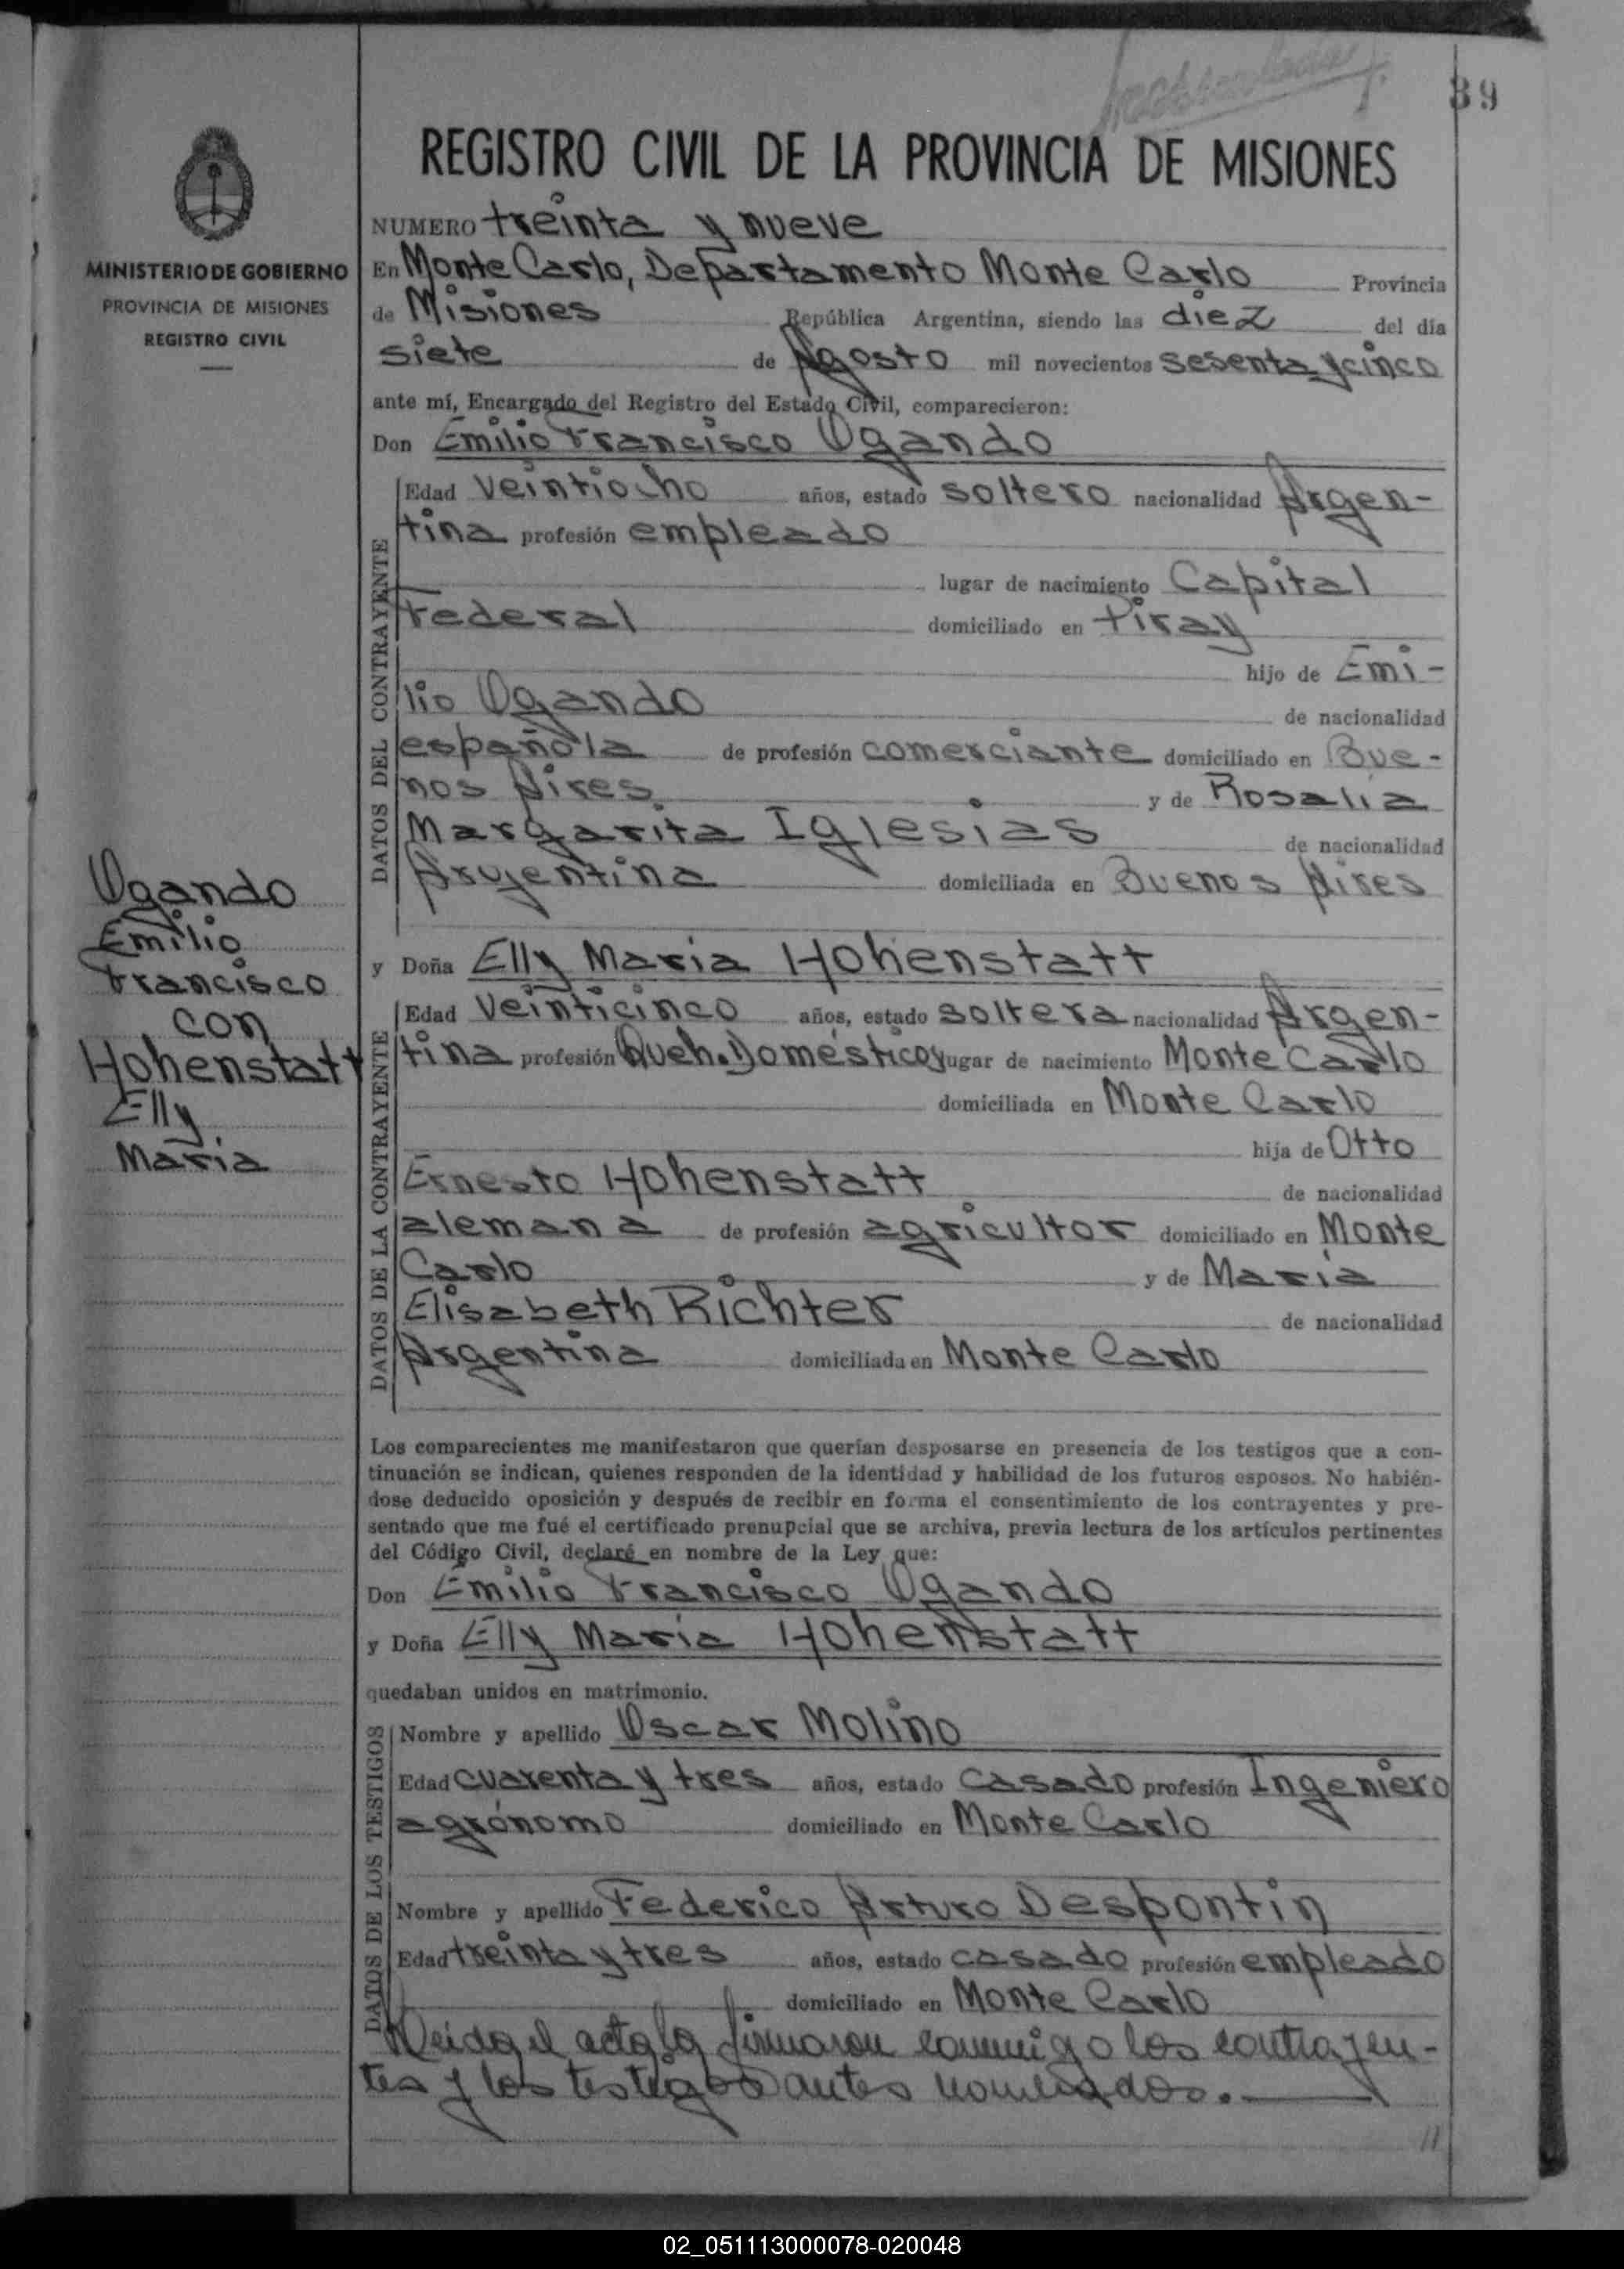 39
REGISTRO CIVIL DE LA PROVINCIA DE MISIONES
MINISTERIO DE GOBIERNO
PROVINCIA DE MISIONES
REGISTRO CIVIL
Ogando
Emilio
Francisco
con
Hohenstatt
Elly
Maria
NUMERO treinta y nueve
En Monte Carlo, Departamento Monte Carlo Provincia
de Misiones República Argentina, siendo las diez del día
siete de Agosto mil novecientos sesenta y cinco
ante mí, Encargado del Registro del Estado Civil, comparecieron:
Don Emilio Francisco Ogando
DATOS DEL CONTRAYENTE
Edad veintiocho años, estado soltero nacionalidad Argen-
tina profesión empleado
lugar de nacimiento Capital
Federal domiciliado en Piray
hijo de Emi-
lio Ogando de nacionalidad
española de profesión comerciante domiciliado en Bue-
nos Aires y de Rosalía
Margarita Iglesias de nacionalidad
Argentina domiciliada en Buenos Aires
y Doña Elly Maria Hohenstatt
DATOS DE LA CONTRAYENTE
Edad veinticinco años, estado soltera nacionalidad Argen-
tina profesión Queh. Domésticos lugar de nacimiento Monte Carlo
domiciliada en Monte Carlo
hija de Otto
Ernesto Hohenstatt de nacionalidad
alemana de profesión agricultor domiciliado en Monte
Carlo y de María
Elisabeth Richter de nacionalidad
Argentina domiciliada en Monte Carlo
Los comparecientes me manifestaron que querían desposarse en presencia de los testigos que a con-
tinuación se indican, quienes responden de la identidad y habilidad de los futuros esposos. No habién-
dose deducido oposición y después de recibir en forma el consentimiento de los contrayentes y pre-
sentado que me fué el certificado prenupcial que se archiva, previa lectura de los artículos pertinentes
del Código Civil, declaré en nombre de la Ley que:
Don Emilio Francisco Ogando
y Doña Elly María Hohenstatt
quedaban unidos en matrimonio.
DATOS DE LOS TESTIGOS
Nombre y apellido Oscar Molino
Edad cuarenta y tres años, estado casado profesión Ingeniero
agrónomo domiciliado en Monte Carlo
Nombre y apellido Federico Arturo Despontin
Edad treinta y tres años, estado casado profesión empleado
domiciliado en Monte Carlo
Leida el acta la firmaron conmigo los contrayen-
tes y los testigos antes nombrados.
02_051113000078-020048